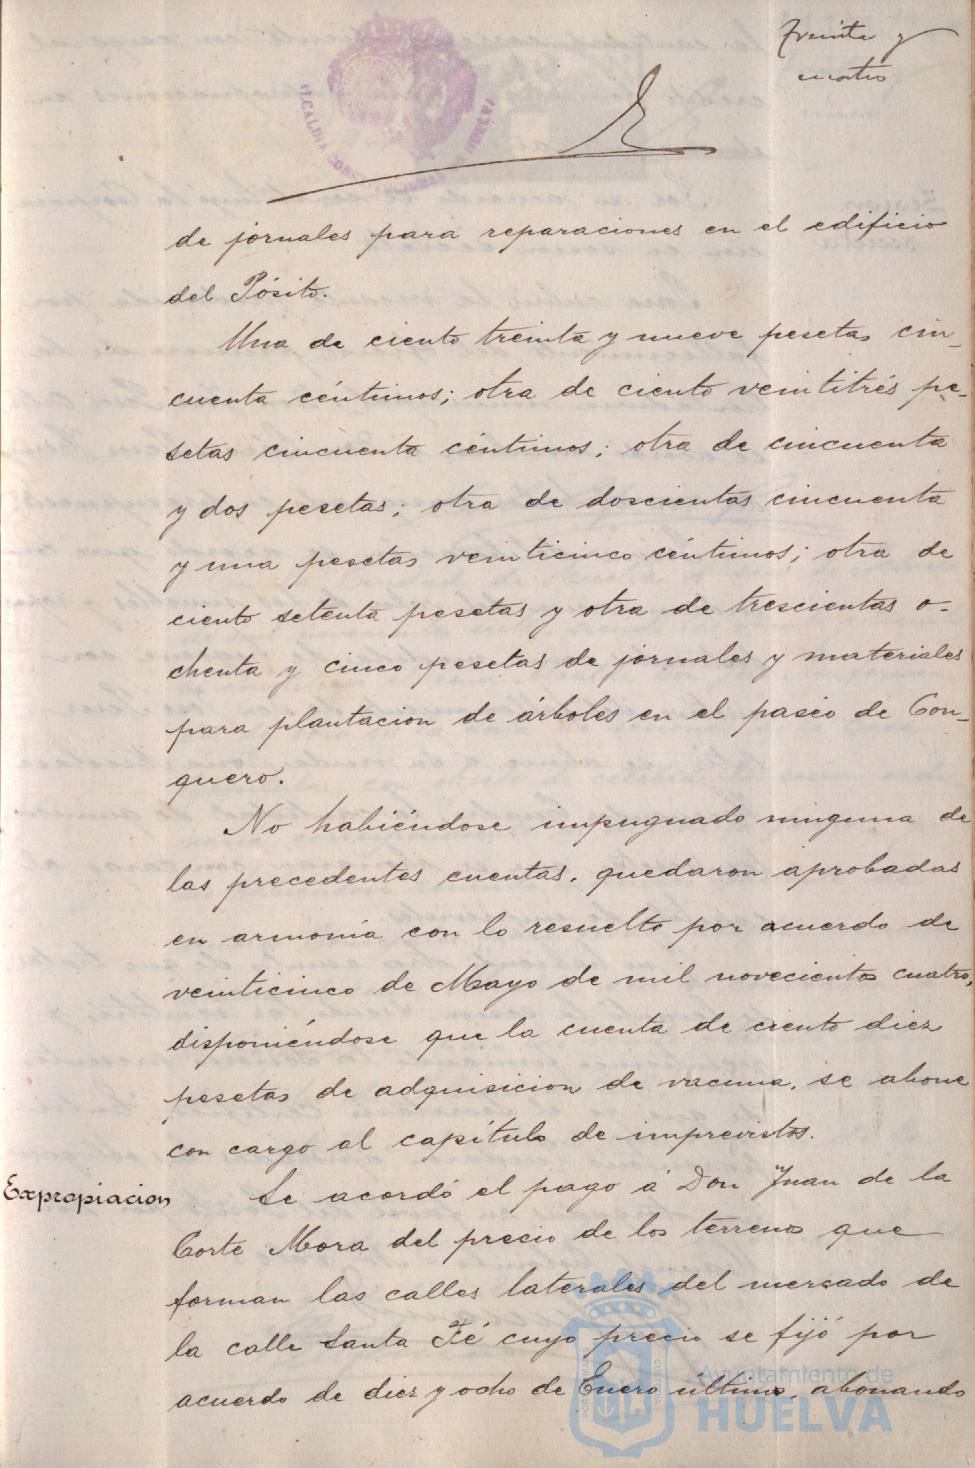 Treinta y
cuatro
ALCALDIA CONSTITUCIONAL HUELVA
de jornales para reparaciones en el edificio
del Pósito.
Una de ciento treinta y nueve pesetas cin-
cuenta céntimos; otra de ciento veintitrés pe-
setas cincuenta céntimos; otra de cincuenta
y dos pesetas; otra de doscientas cincuenta
y una pesetas veinticinco céntimos; otra de
ciento setenta pesetas y otra de trescientas o-
chenta y cinco pesetas de jornales y materiales
para plantacion de árboles en el paseo de Con-
quero.
No habiéndose impugnado ninguna de
las precedentes cuentas, quedaron aprobadas
en armonía con lo resuelto por acuerdo de
veinticinco de Mayo de mil novecientos cuatro,
disponiéndose que la cuenta de ciento diez
pesetas de adquisicion de vacuna, se abone
con cargo al capítulo de imprevistos.
Expropiacion
Se acordó el pago á Don Juan de la
Corte Mora del precio de los terrenos que
forman las calles laterales del mercado de
la calle Santa Fé cuyo precio se fijó por
acuerdo de diez y ocho de Enero último, abonando
Ayuntamiento de
HUELVA